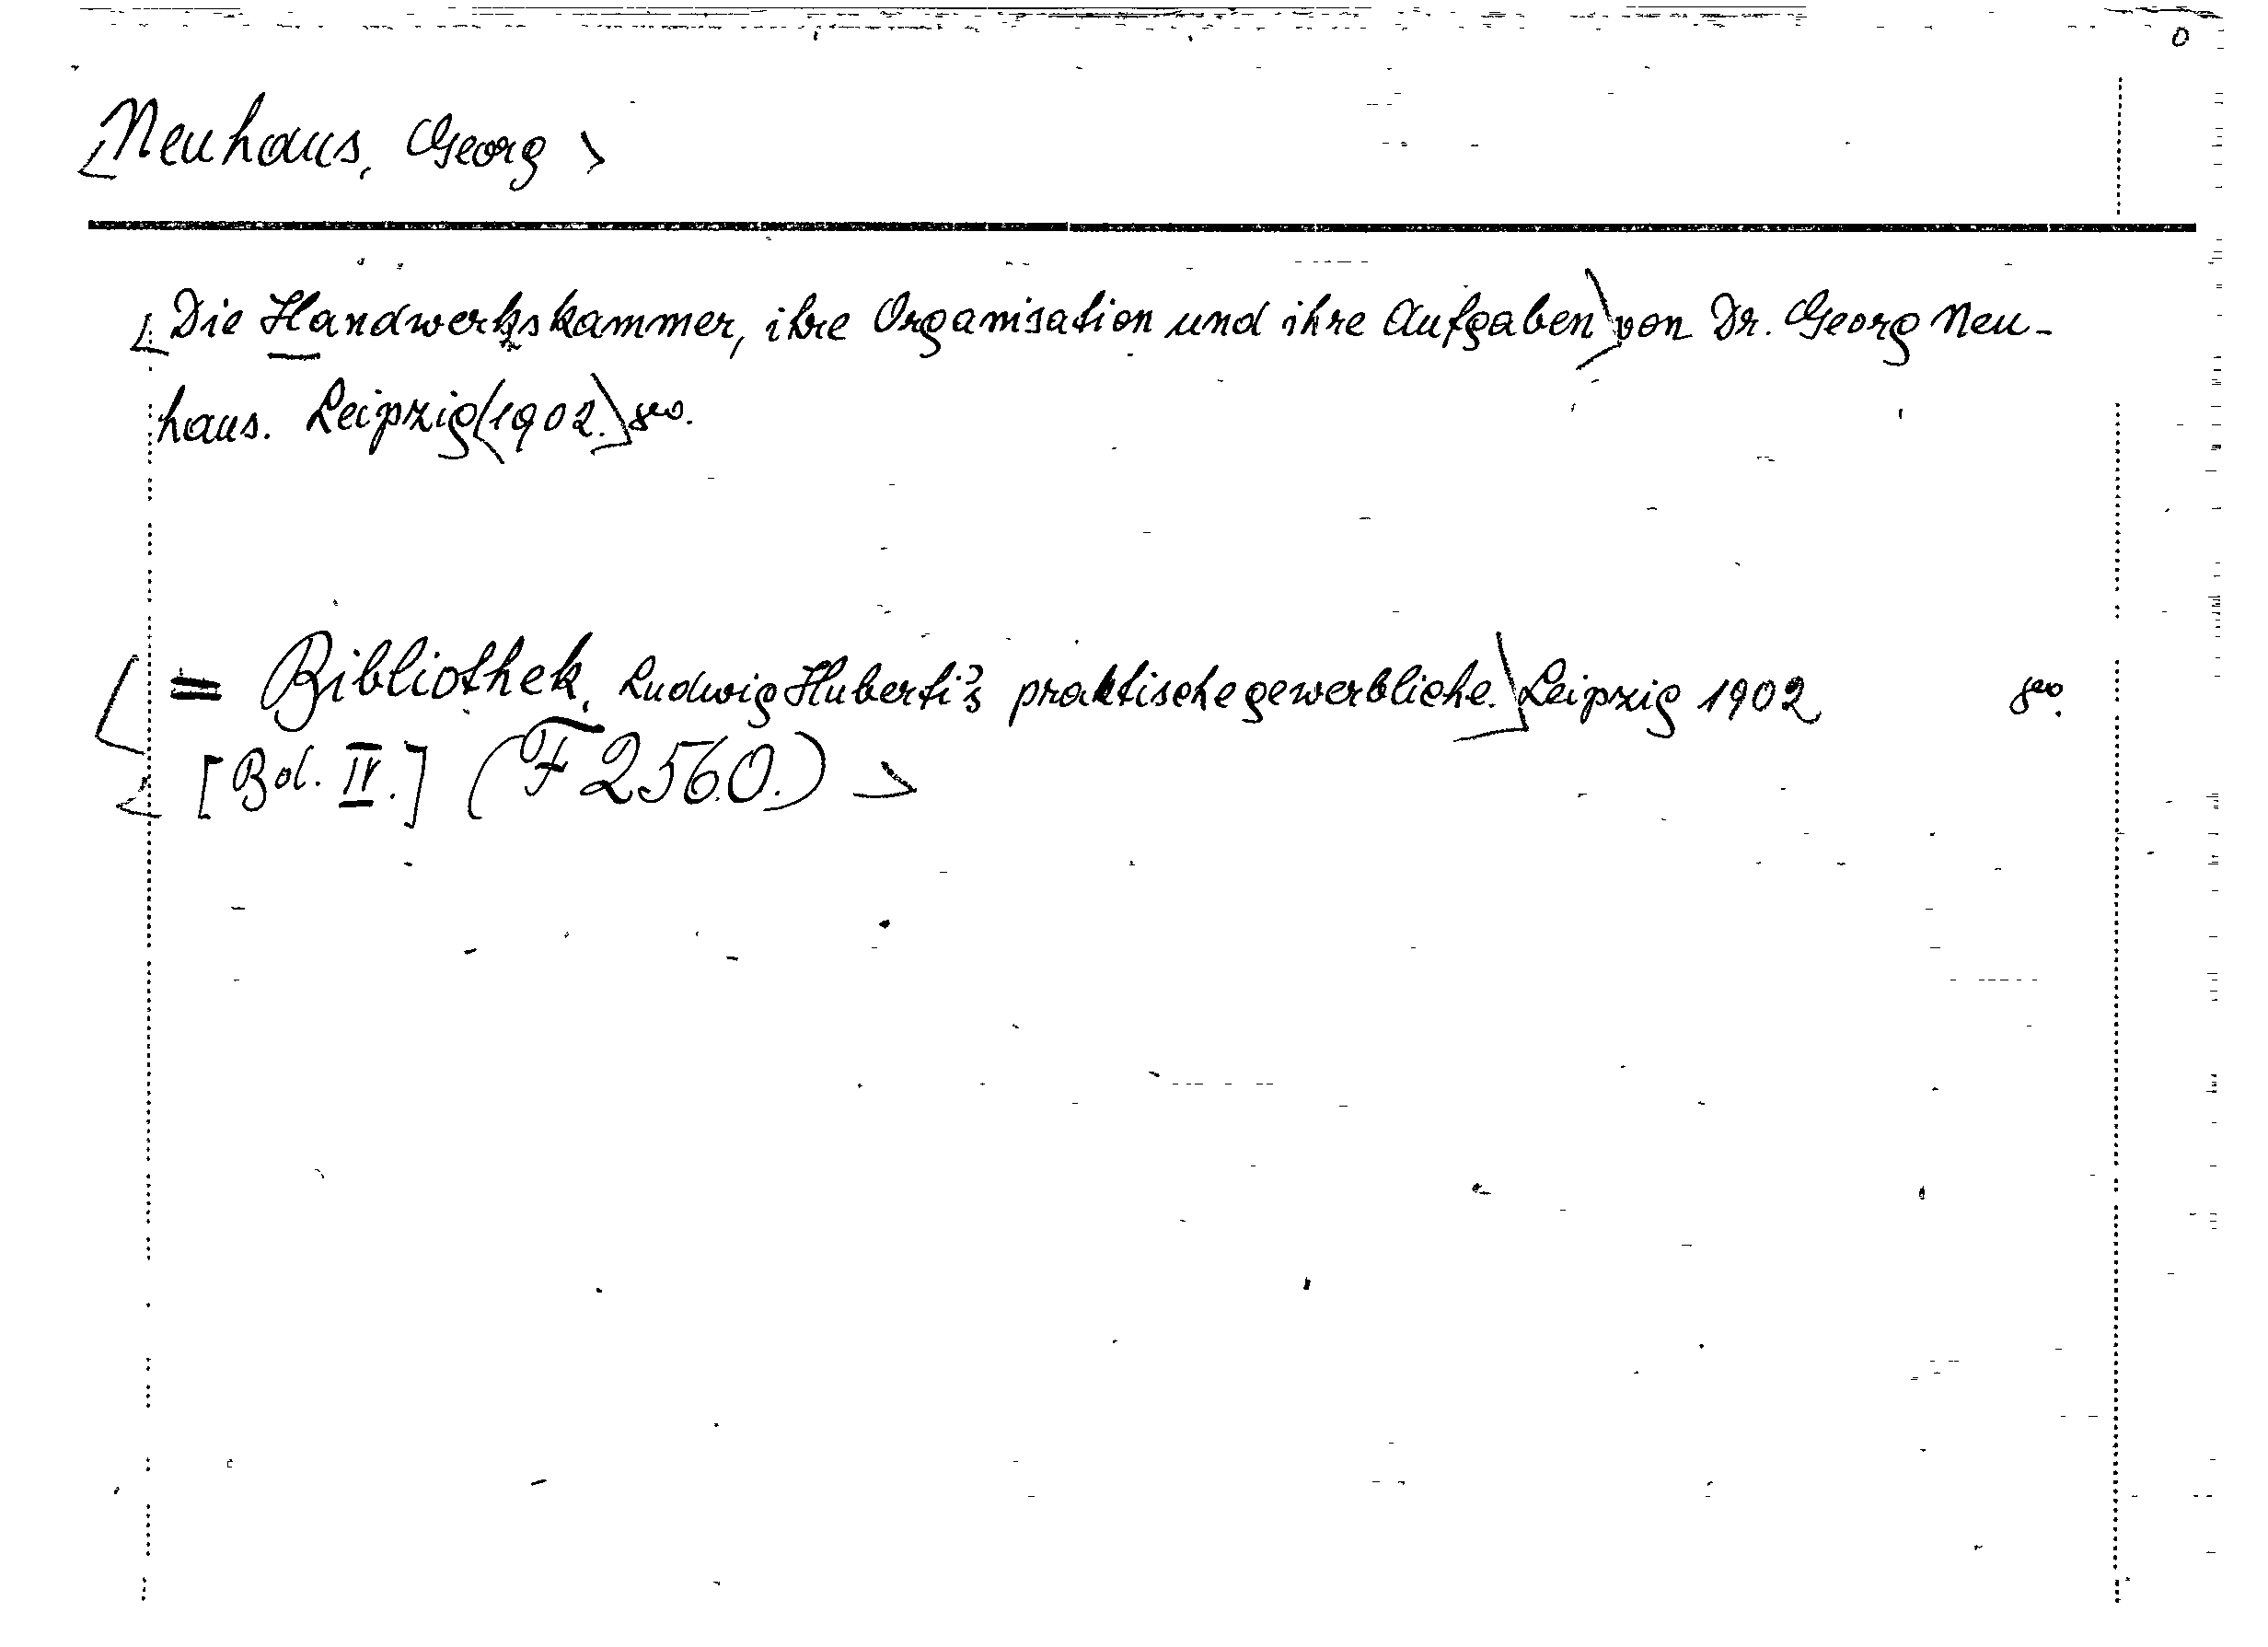 0
Neuhaus, Georg
Die Handwerkskammer, ihre Organisation und ihre Aufgaben von Dr. Georg Neu-
haus. Leipzig 1902. 8vo.
= Bibliothek, Ludwig Huberti's praktische gewerbliche. Leipzig 1902 8vo.
[Bd. IV.] (F 2560.)